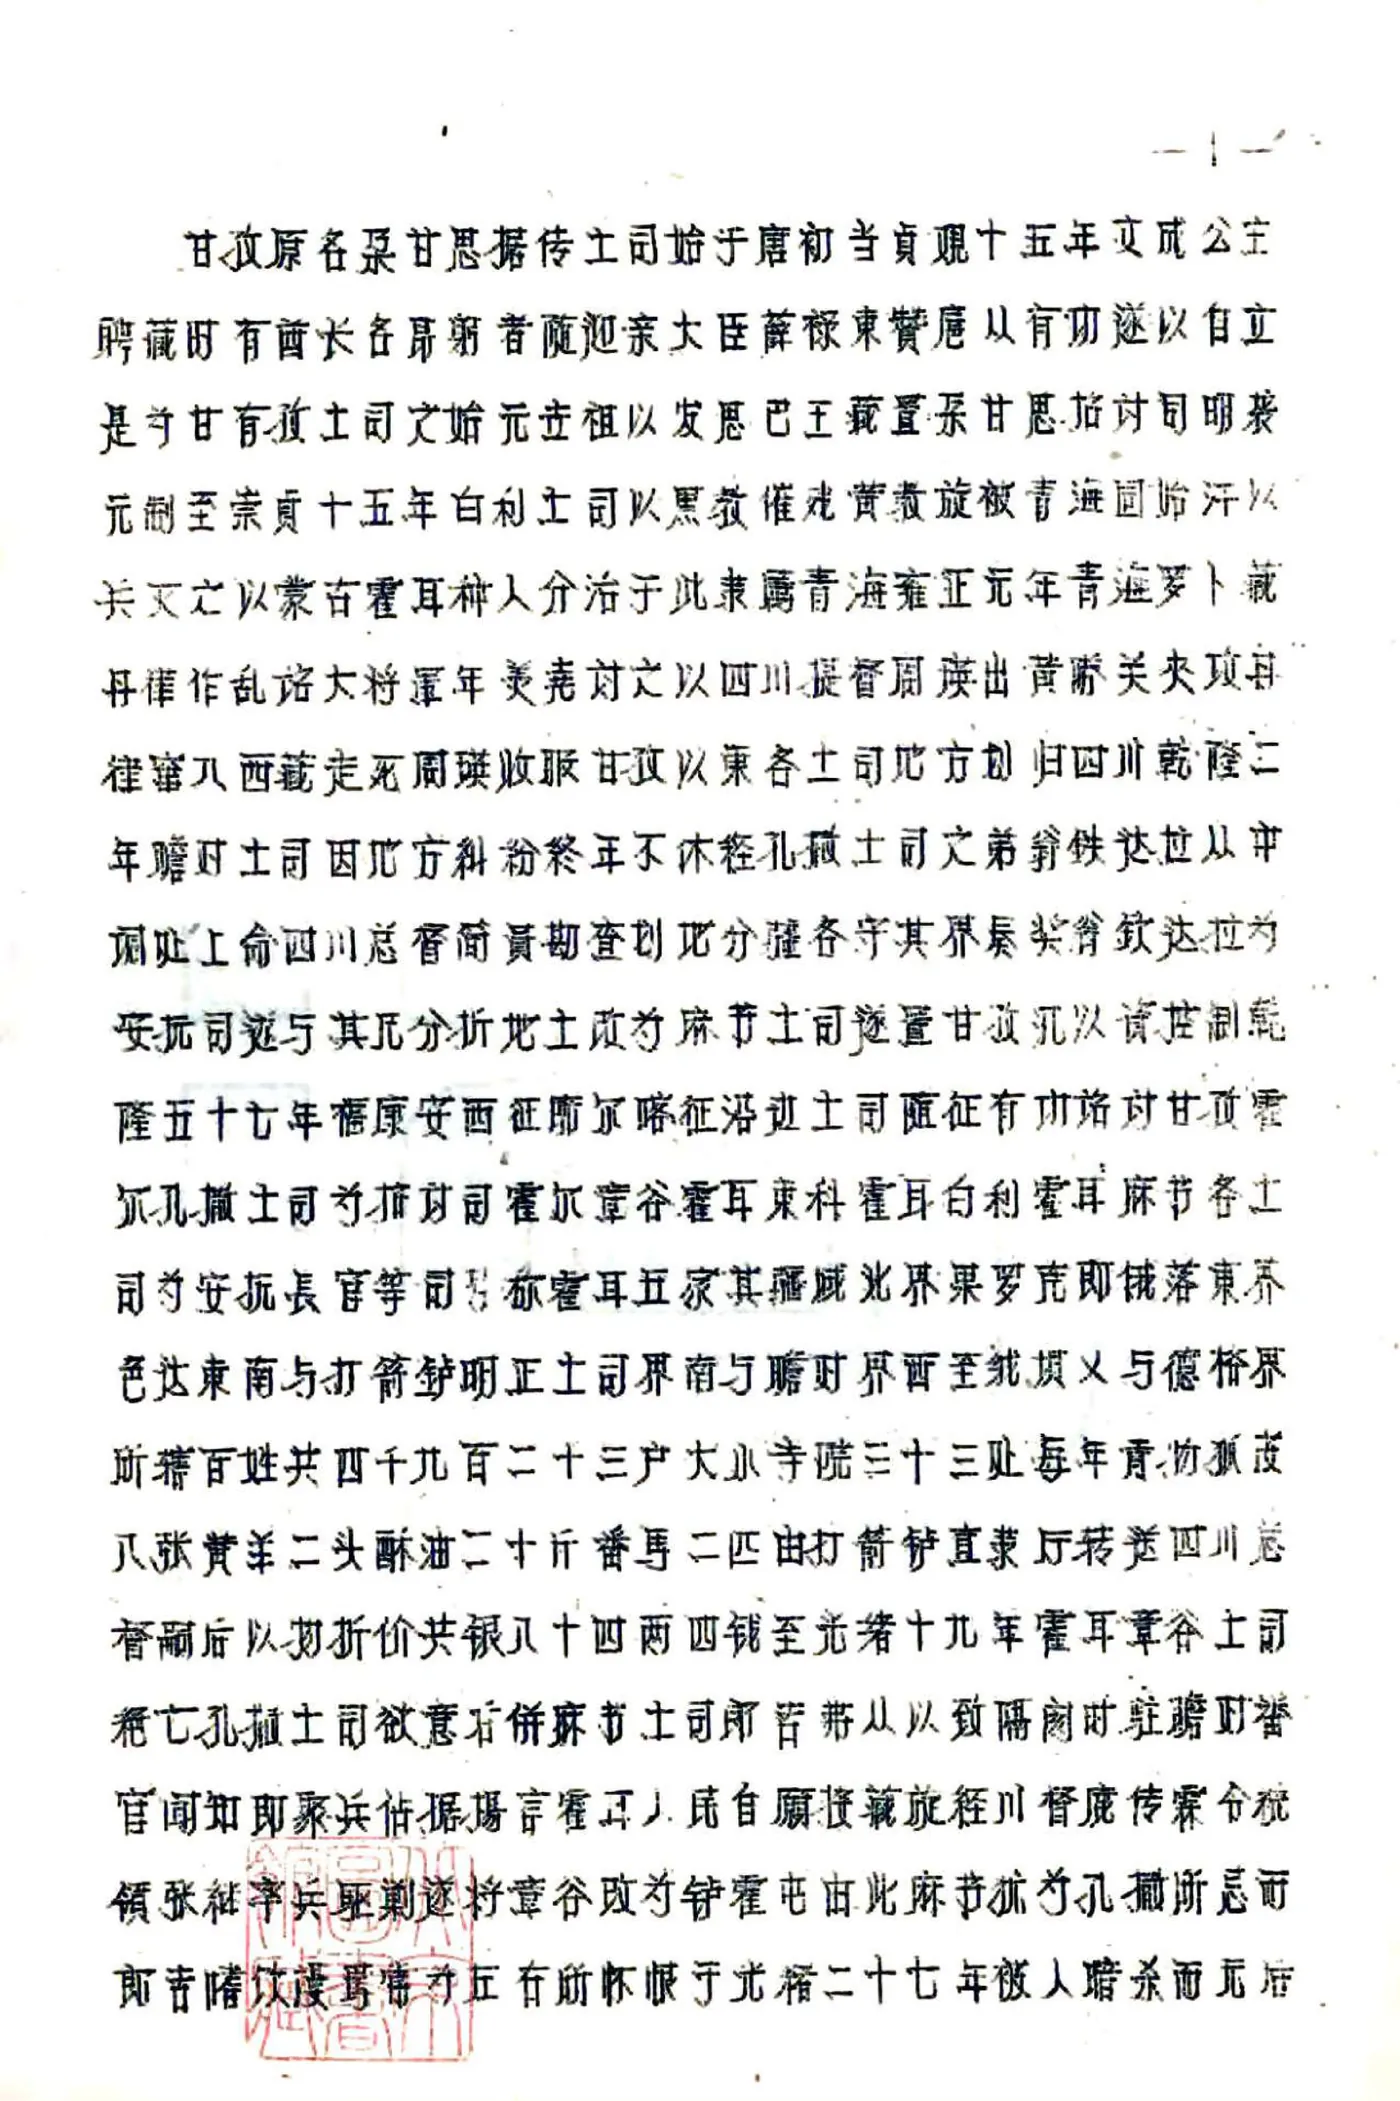 —1—
甘孜原名朵甘思据传土司始于唐初当貞观十五年文成公主
聘藏时有酋长名昂躬者随迎亲大臣薛禄東赞扈从有功遂以自立
是为甘有孜土司之始元世祖以发思巴王藏置朵甘思招讨司明袭
元制至崇貞十五年白利土司以黑教催戏黄教旋被青海固始汗以
兵灭之以蒙古霍耳种人分治于此隶属青海雍正元年青海罗卜藏
丹律作乱诏大将軍年羹尭討之以四川提督周瑛出黄勝关夹攻丹
律窜入西藏走死周瑛收服甘孜以東各土司地方划归四川乾隆二
年瞻对土司因地方糾纷終年不休经孔撒土司之弟翁钦达拉从中
调处上命四川总督简員勘查划地分疆各守其界奏奖翁钦达拉为
安抚司遂与其兄分折地土改为麻书土司遂置甘孜汛以资控制乾
隆五十七年福康安西征廓尔喀征沿边土司随征有功诏讨甘孜霍
尔孔撒土司为招讨司霍尔章谷霍耳東科霍耳白利霍耳麻书各土
司为安抚長官等司号称霍耳五家其疆域北界果罗克即俄落東界
色达東南与打箭铲明正土司界南与瞻对界西至绒坝义与德格界
所辖百姓共四千九百二十三户大小寺院三十三处每年青物狐皮
八张黄羊二头酥油二十斤番馬二匹由打箭铲直隶厅转送四川总
督嗣后以物折价共银八十四两四钱至光绪十九年霍耳章谷土司
絕亡孔撒土司欲意右併麻书土司郎吉带从以致隔阂时驻瞻对番
官闻知即聚兵佔据揚言霍耳人民自願投藏旋经川督鹿传霖令统
領张继率兵駆剿遂将章谷改为铲霍屯由此麻书尤为孔撒所忌而
郎吉嗜饮漫骂常为左右所怀恨于光绪二十七年被人暗杀而无后